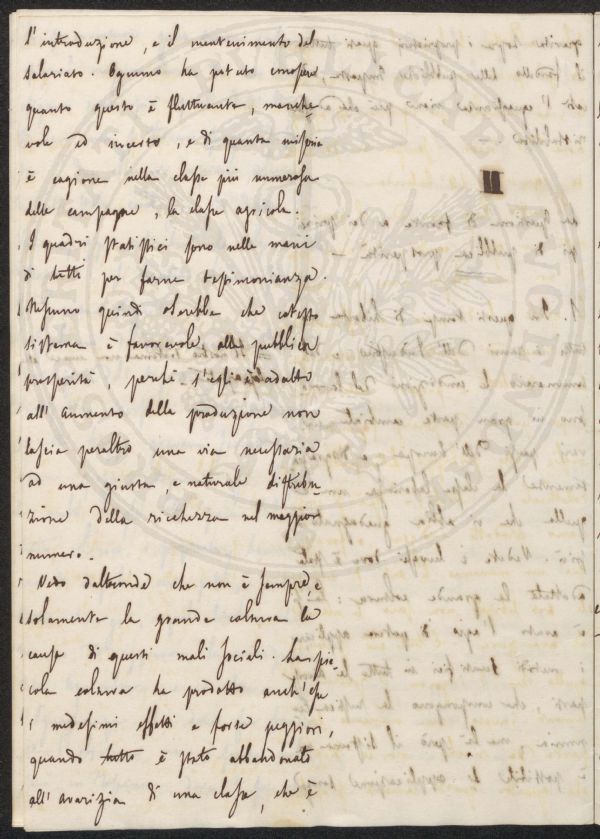 l'introduzione, e il mantenimento del
salariato. Ognuno ha potuto conoscere
quanto questo è fluttuante, manche-
vole ed incerto, e di quanta miseria
è cagione nella classe più numerosa
delle campagne, la classe agricola.
I quadri statistici sono nelle mani
di tutti per farne testimonianza.
Nessuno quindi oserebbe che cotesto
sistema è favorevole alla pubblica
prosperità, perché s'egli è adatto
all'aumento della produzione non
lascia peraltro una via necessaria
ad una giusta, e naturale distribu-
zione della ricchezza nel maggior
numero.
Vedo d'altronde che non è sempre, e
solamente la grande coltura la
causa di questi mali sociali. La pic-
cola coltura ha prodotto anch'essa
i medesimi effetti e forse peggiori,
quando tutto è stato abbandonato
all'avarizia di una classe, che è